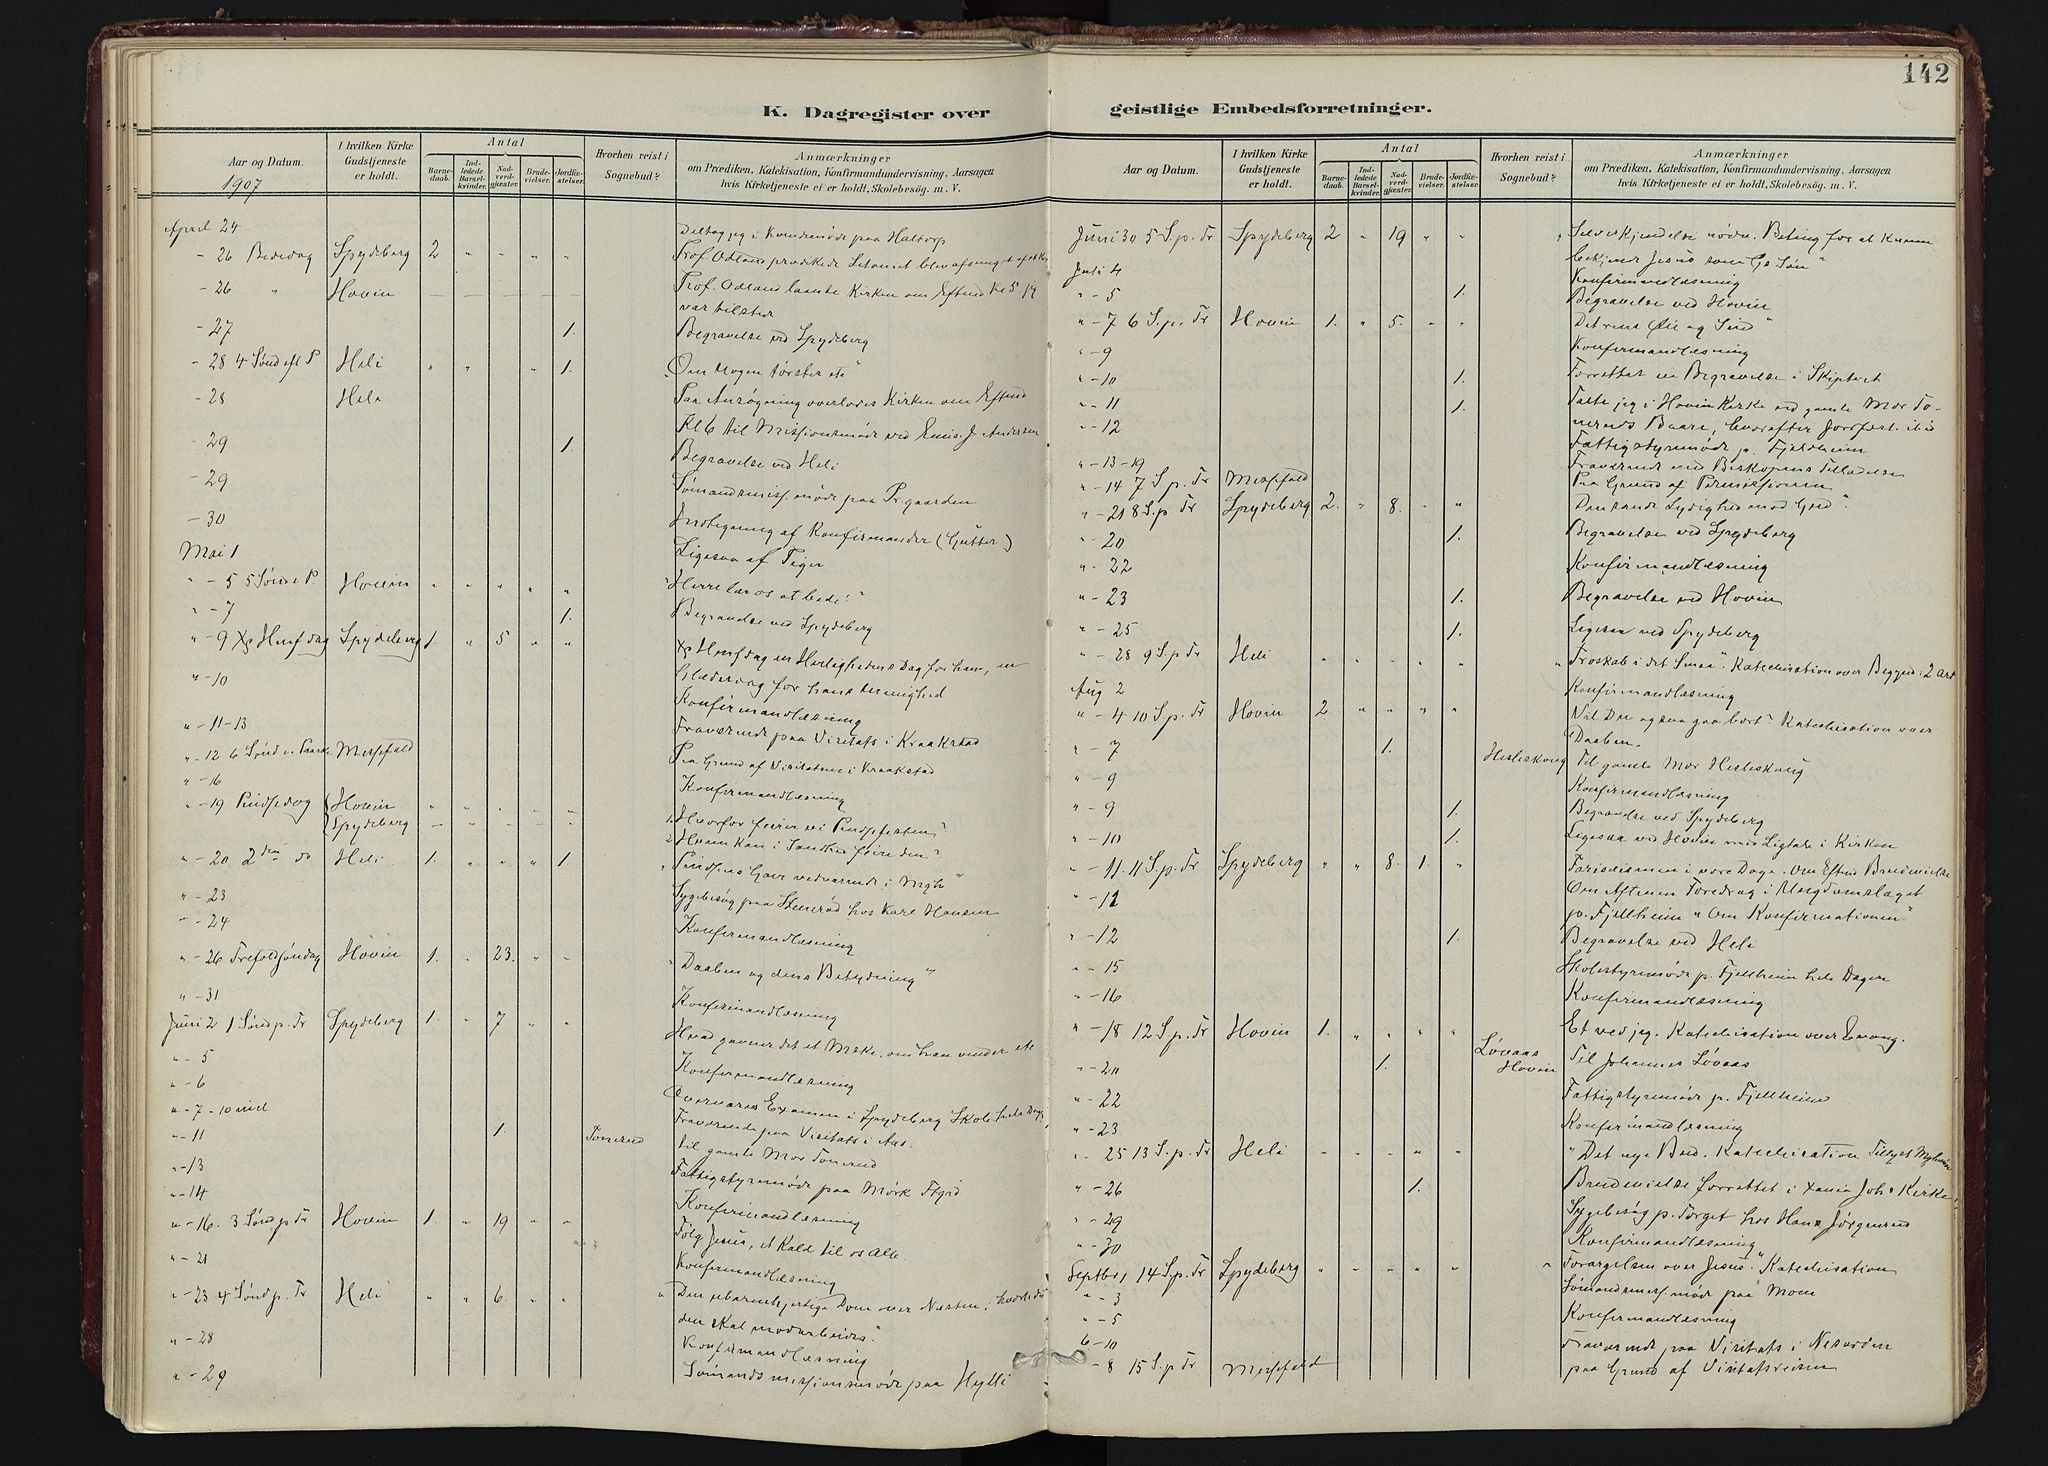 142
K. Dagregister over geistlige Embedsforretninger.
Aar og Datum. | I hvilken Kirke Gudstjeneste er holdt. | Antal | Barne-daab. | Ind-ledede Barsel-kvinder. | Nad-verd-gjester. | Brude-vielser. | Jordfæ-stelser. | Hvorhen reist i Sognebud? | Anmærkninger om Prædiken, Katekisation, Konfirmandundervisning, Aarsagen hvis Kirketjeneste ei er holdt, Skolebesög. m. V.
1907
April 24 Deltog jeg i Kredsmøde paa Haltorp
" 26 Bededag Spydeberg 2 " " " " Prof. Odland prædikede
- 26 " Hovin Prof. Odland laante Kirken om Eftmd Kl 5 jeg
var tilstede
- 27 1. Begravelse ved Spydeberg
- 28 4 Sønd eft P Heli " " " 1. "Om Nogen tørster etc"
- 28 Heli Paa Ansøgning overlodes Kirken om Eftmd
Kl 6 til Missionsmøde ved Emis. J. Andersen
- 29 1. Begravelse ved Heli
- 29 Sømandsmiss. møde paa Pr.gaarden
- 30 Indtegning af Konfirmander (Gutter)
Mai 1 Ligesaa af Piger
" - 5 5 Sønd e P. Hovin " " " " " "Herre lær os at bede!"
" - 7 1. Begravelse ved Spydeberg
" - 9 Xp Himfdag Spydeberg 1. " 5 " " Xp Himfdag en Herlighedens Dag for ham, en
Glædesdag for hans Menighed
" - 10 Konfirmandlæsning
" - 11-13 Fraværende paa Visitats i Kraakstad
" - 12 6 Sønd e. Paaske Messefald Paa Grund af Visitatsen i Kraakstad
" - 16 Konfirmandlæsning
" - 19 Pindsedag Hovin " " " " " 1. Hvorfor feirer vi Pindsefesten?
Spydeberg - - - - - 2 Hvem kan i Sandhed feire den?
" - 20 2den do Heli 1. " " " 1 "Pindsens Gave vedvarende i Mgh"
" - 23 Sygebesøg paa Stenerød hos Karl Hansen
" - 24 Konfirmandlæsning
" - 26 Trefoldsøndag Hovin 1. " 23. " " "Daaben og dens Betydning"
" - 31 Konfirmandlæsning
Juni 2 1 Sønd p. Tr Spydeberg 1. " 7 " " Hvad gavner det et Mske, om han vinder etc
" - 5 Konfirmandlæsning
" - 6 Overvares Examen i Spydeberg Skole hele Dag.
" - 7 - 10 incl Fraværende paa Visitats i Aas.
" - 11 1. Tonerud til gamle Mor Tonerud
" - 13 Fattigstyremøde paa Mørk Ftgrd
" - 14 Konfirmandlæsning
" - 16. 3 Sønd p Tr Hovin 1. " 19 " " Følg Jesus, et Kald til os Alle
" - 21 Konfirmandlæsning
" - 23 4 Sønd p. Tr Heli " " 6. " " "Den ubarmhjertige Dom over Næsten; hvorledes
den skal modarbeides".
" - 28 Konfirmandlæsning
" - 29 Sømandsmissionsmøde paa Hylli
Aar og Datum. | I hvilken Kirke Gudstjeneste er holdt. | Antal | Barne-daab. | Ind-ledede Barsel-kvinder. | Nad-verd-gjester. | Brude-vielser. | Jordfæ-stelser. | Hvorhen reist i Sognebud? | Anmærkninger om Prædiken, Katekisation, Konfirmandundervisning, Aarsagen hvis Kirketjeneste ei er holdt, Skolebesög. m. V.
Juni 30 5 S. p. Tr Spydeberg 2 " 19 " " "Selverkjendelse nødv. Beting for at kunne
bekjende Jesus som Gs Søn"
Juli 4 Konfirmandlæsning
" - 5 1. Begravelse ved Hovin
" - 7 6 S. p. Tr Hovin 1. " 5. " " Det rene Øie og Sind"
" - 9 Konfirmandlæsning
" - 10 1. Forrettet en Begravelse i Skiptvet
" - 11 1. Talte jeg i Hovin Kirke ved gamle Mor To-
neruds Baare, hvorefter Jordfæst.
" - 12 Fattigstyremøde p. Fjeldheim
" - 13-19 Fraværende med Biskopens Tilladelse
" - 14 7 S. p. Tr Messefald Paa Grund af Permissionen
" - 21 8 S. p Tr Spydeberg 2. " 8. " " "Den sande Lydighed mod Gud".
" - 20 1. Begravelse ved Spydeberg
" - 22 Konfirmandlæsning
" - 23 1. Begravelse ved Hovin
" - 25 1. Ligesaa ved Spydeberg
" - 28 9 S. p Tr Heli " " " " " "Troskab i det Smaa". Katechisation over 2 Art
Aug 2 Konfirmandlæsning
" - 4 10 S. p. Tr Hovin 2 " " " " Vil Du ogsaa gaa bort? Katechisation over
Daaben.
" - 7 1. Hesleskoug Til gamle Mor Hesleskoug
" - 9 Konfirmandlæsning
" - 9 1. Begravelse ved Spydeberg
" - 10 1. Ligesaa ved Hovin med Ligtale i Kirken
" - 11. 11 S. p. Tr Spydeberg " " 8. 1. " Fariseismen i vore Dage. Om Eftmd Brudevielse
" - 12 Om Aftenen Foredrag i Ungdomslaget
p. Fjellheim "Om Konfirmationen"
" - 12 1. Begravelse ved Heli
" - 15 Skolestyremøde p. Fjellheim hele Dagen
" - 16 Konfirmandlæsning
" - 18 12 S. p. Tr Hovin 1. " " " " Et ved jeg. Katechisation over Evang.
" - 20 1. Løvaas Hovin Til Johannes Løvaas
" - 22 Fattigstyremøde p. Fjellheim
" - 23 Konfirmandlæsning
" - 25 13 S. p. Tr Heli " " " " " "Det nye Bud. Katechisation
" - 26 1. Brudevielse forrettet i Xania Johs Kirke
" - 29 Sygebesøg p. Torget hos Hans Jørgensen
" - 30 Konfirmandlæsning
Septbr 1 14 S. p. Tr Spydeberg " " " " " "Forargelsen over Jesus". Katechisation
" - 3 Sømandsmiss. møde paa Moen
" - 5 Konfirmandlæsning
6 - 10 Fraværende paa Visitats i Nesodden
- 8 15 S. p Tr Messefald paa Grund af Visitatsreisen